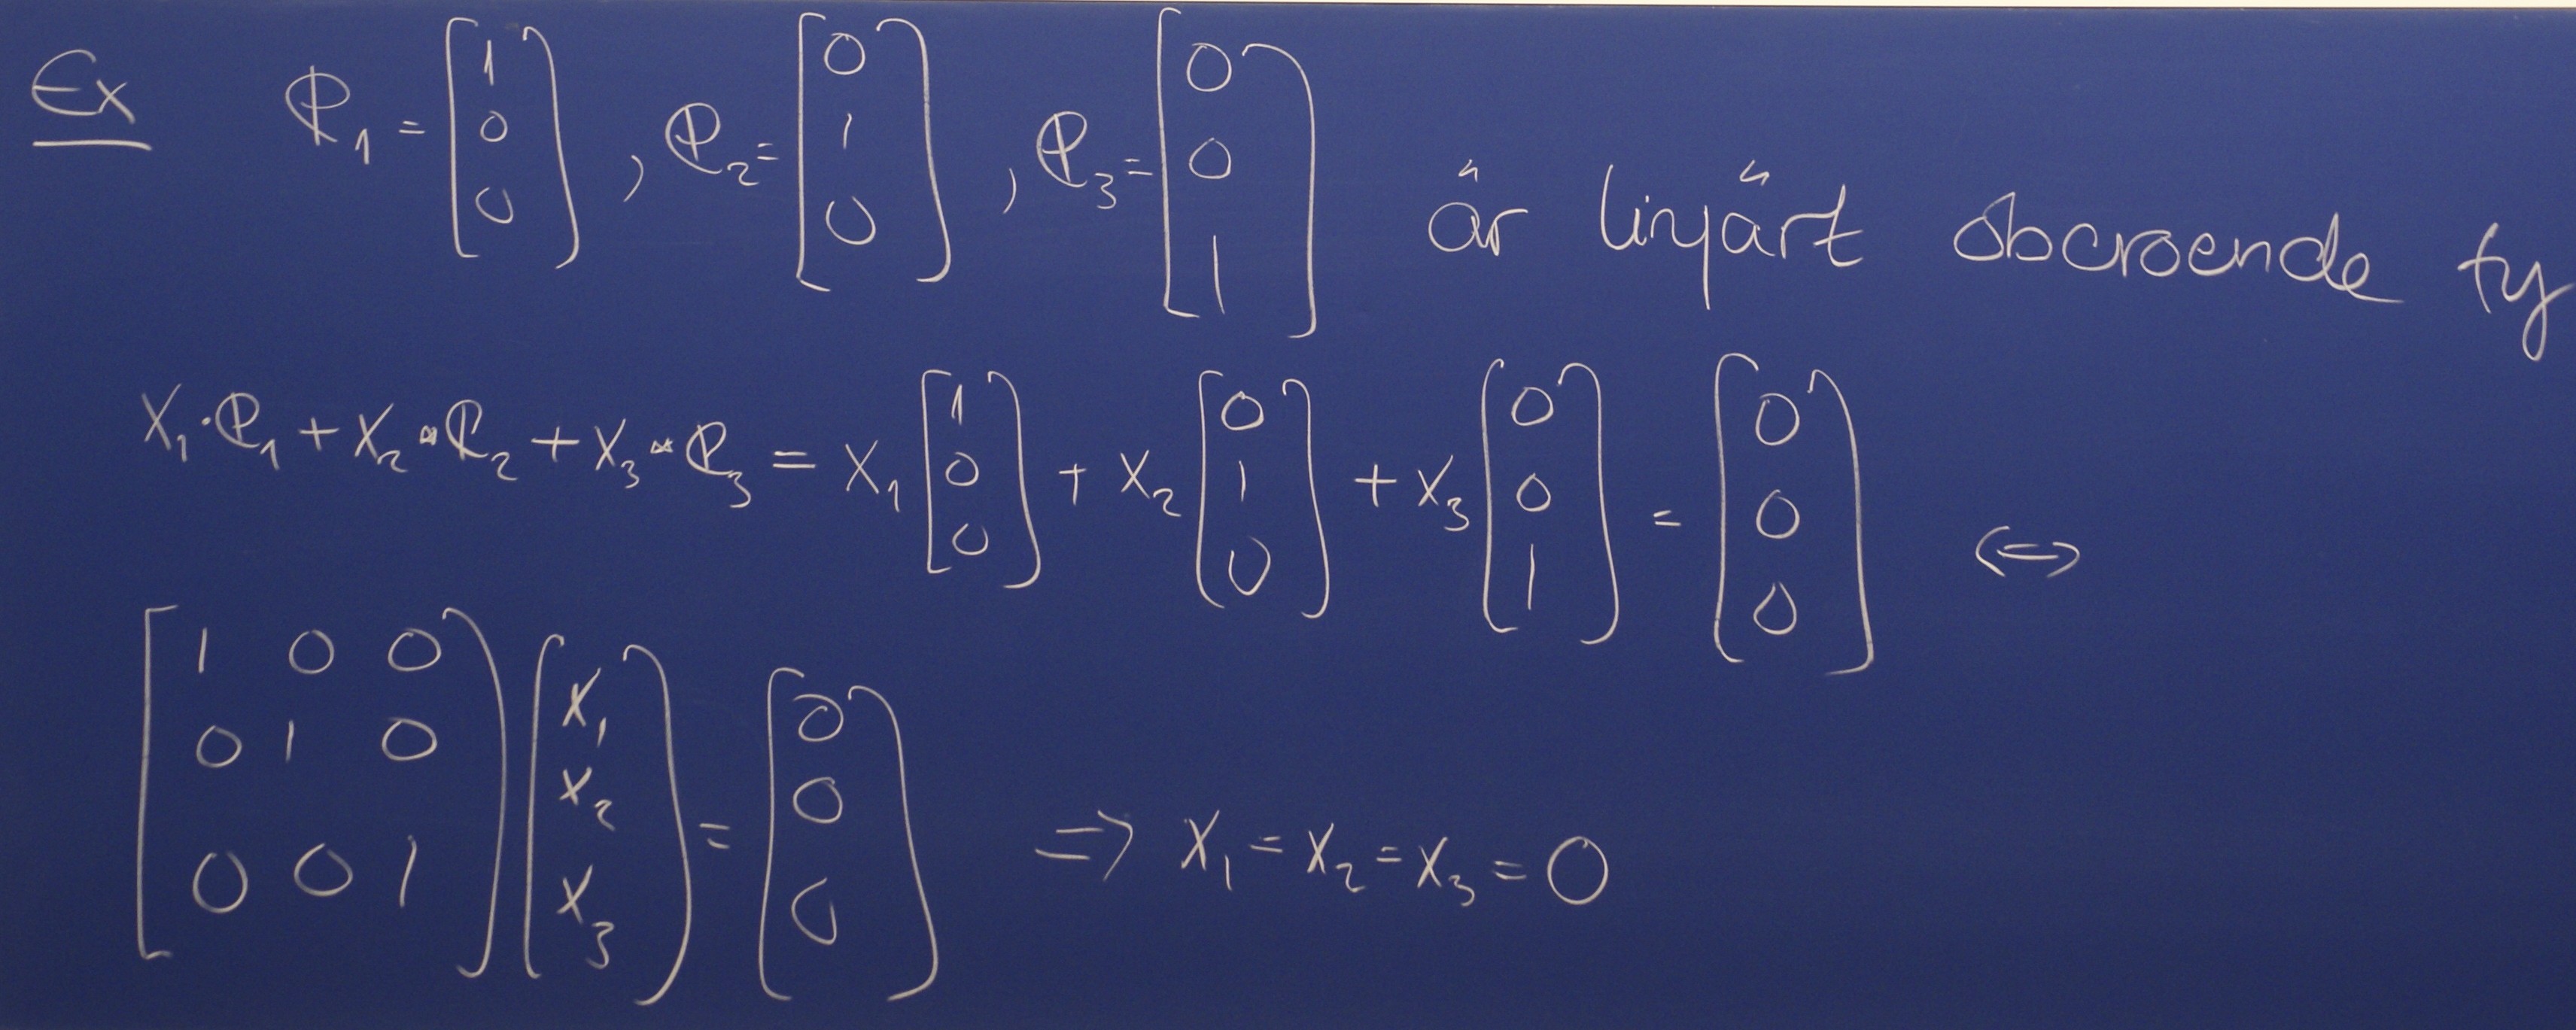 Ex e₁ = [1 0 0], e₂ = [0 1 0], e₃ = [0 0 1] är linjärt oberoende ty
x₁·e₁ + x₂·e₂ + x₃·e₃ = x₁ [1 0 0] + x₂ [0 1 0] + x₃ [0 0 1] = [0 0 0] ⇔
[1 0 0
0 1 0
0 0 1] [x₁ x₂ x₃] = [0 0 0] ⇒ x₁ = x₂ = x₃ = 0